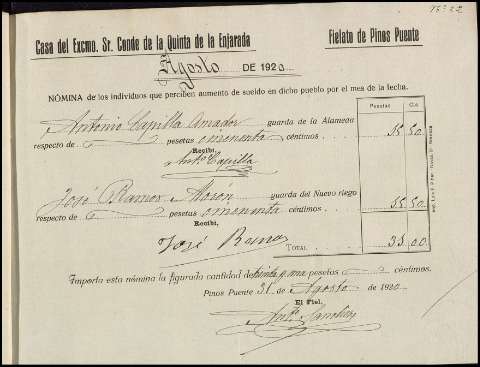 Nº 22
Casa del Excmo. Sr. Conde de la Quinta de la Enjarada
Fielato de Pinos Puente
Agosto DE 1920
NÓMINA de los individuos que perciben aumento de sueldo en dicho pueblo por el mes de la fecha.
Pesetas Cts.
Antonio Capilla Amador guarda de la Alameda
respecto de pesetas céntimos 15 50
Recibí,
Antº Capilla
José Ramos Morón guarda del Nuevo riego
respecto de pesetas céntimos 15 50
Recibí,
José Ramos
TOTAL 31 00
Importa esta nómina la figurada cantidad de treinta y una pesetas céntimos.
Pinos Puente 31 de Agosto de 1920
El Fiel,
Antº